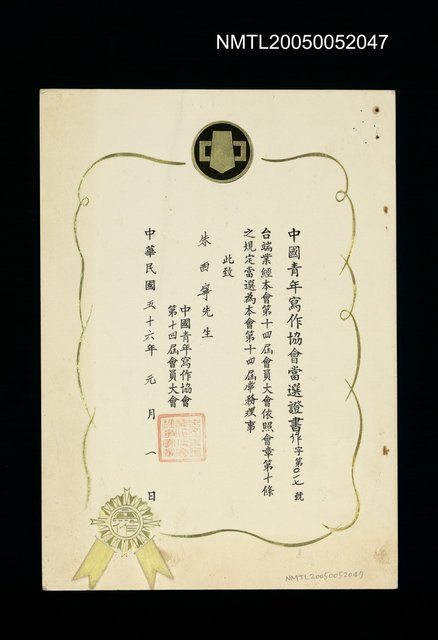 NMTL20050052047
中國青年寫作協會當選證書作字第〇一七號
台端業經本會第十四屆會員大會依照會章第十條
之規定當選為本會第十四屆常務理事
此致
朱西甯先生
中國青年寫作協會
第十四屆會員大會
中華民國五十六年元月一日
NMTL20050052047